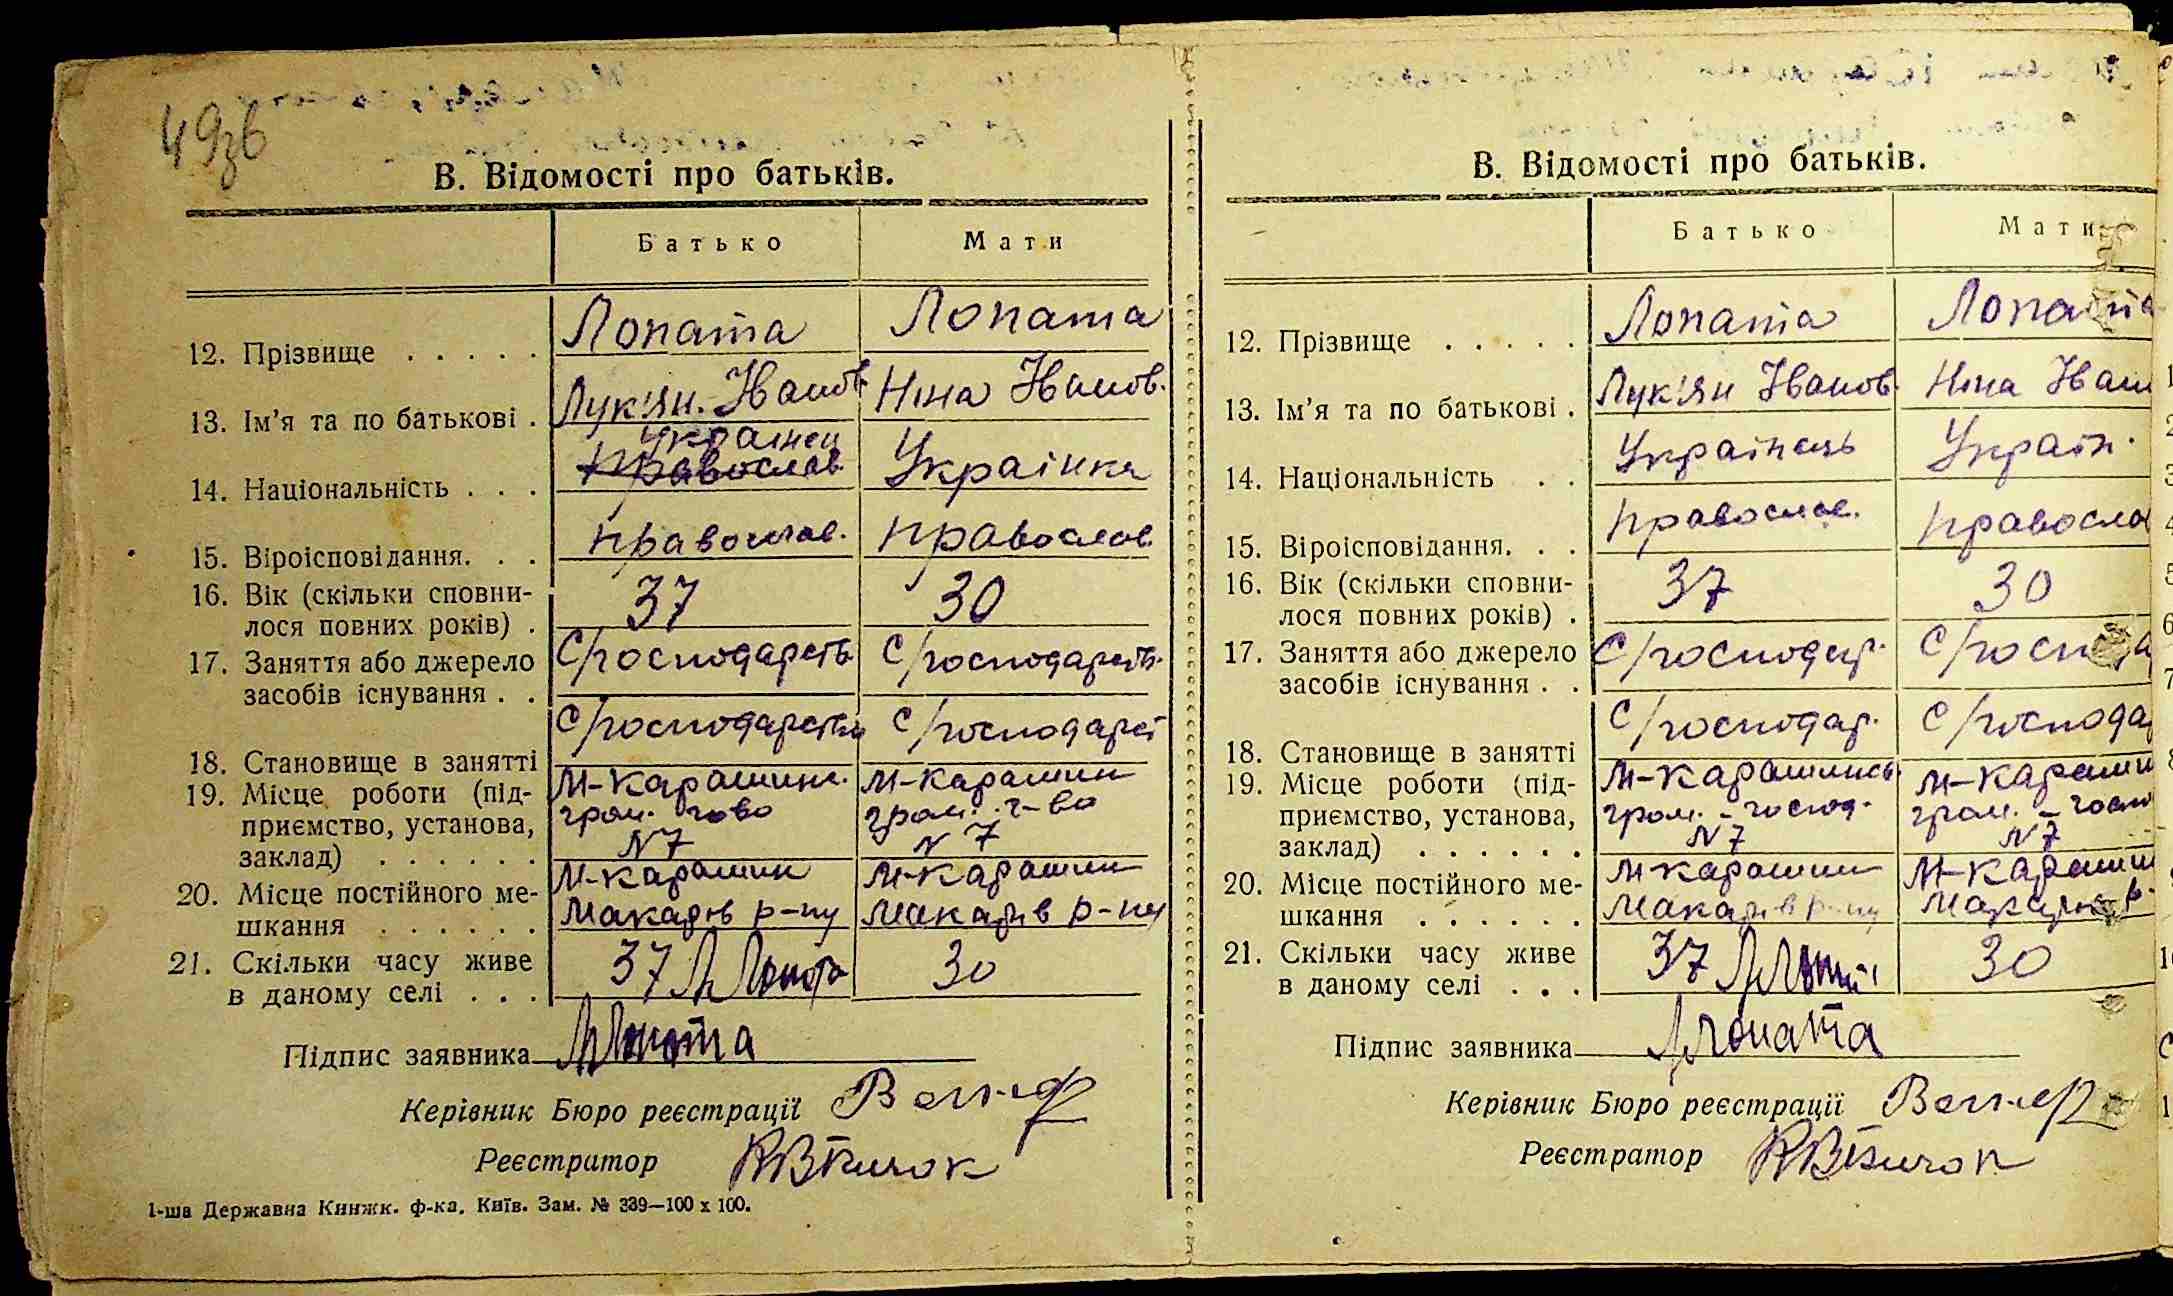 49зв
В. Відомості про батьків.
Батько Мати
12. Прізвище . . . . . Лопата Лопата
13. Ім'я та по батькові . Лук'ян. Іванов. Ніна Іванов.
Українец
14. Національність . . . православ. Українка
15. Віроісповідання. . . православ. православ.
16. Вік (скільки сповни-
лося повних років) . 37 30
17. Заняття або джерело С/господарств. С/господарств.
засобів існування . .
18. Становище в занятті С/господарств С/господарст
19. Місце роботи (під- М-Карашин. М-Карашин
приємство, установа, гром. г-во гром. г-во
заклад) . . . . . . N 7 N 7
20. Місце постійного ме- М-Карашин М-Карашин
шкання . . . . . . Макарів р-ну Макарів р-ну
21. Скільки часу живе
в даному селі . . . 37 Л Лопата 30
Підпис заявника Л Лопата
Керівник Бюро реєстрації
Реєстратор
1-ша Державна Книжк. ф-ка. Київ. Зам. № 339—100 х 100.
В. Відомості про батьків.
Батько Мати
12. Прізвище . . . . . Лопата Лопата
13. Ім'я та по батькові . Лук'ян Іванов. Ніна Іван
14. Національність . . Українець Україн.
15. Віроісповідання. . . православ. правосла
16. Вік (скільки сповни-
лося повних років) . 37 30
17. Заняття або джерело С/господар. С/госпо
засобів існування . .
18. Становище в занятті С/господар. С/господа
19. Місце роботи (під- М-Карашинсь М-Карашин
приємство, установа, гром. - господ. гром. - госпо
заклад) . . . . . . N 7 N 7
20. Місце постійного ме- М-Карашин М-Карашин
шкання . . . . . . Макарів р-ну Макарів р-
21. Скільки часу живе
в даному селі . . . 37 30
Підпис заявника Л Лопата
Керівник Бюро реєстрації
Реєстратор